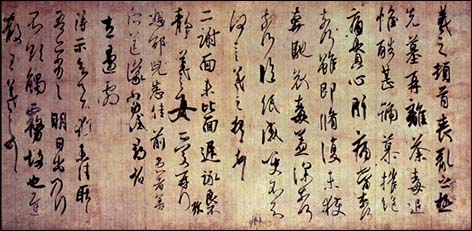 羲之頓首喪亂之極
先墓再離荼毒追
惟酷甚號慕摧絕
痛貫心肝痛當奈何
奈何雖即脩復未獲
奔馳哀毒益深奈何
奈何臨紙感哽不知
何言羲之頓首頓首
二謝面未比面遲詠良不
靜羲之女愛再拜
想邵兒悉佳前患者善
左邊劇
得示知足下猶未佳耿
耿吾亦劣劣明日出乃行
不欲觸霧故也遲
散王羲之頓首